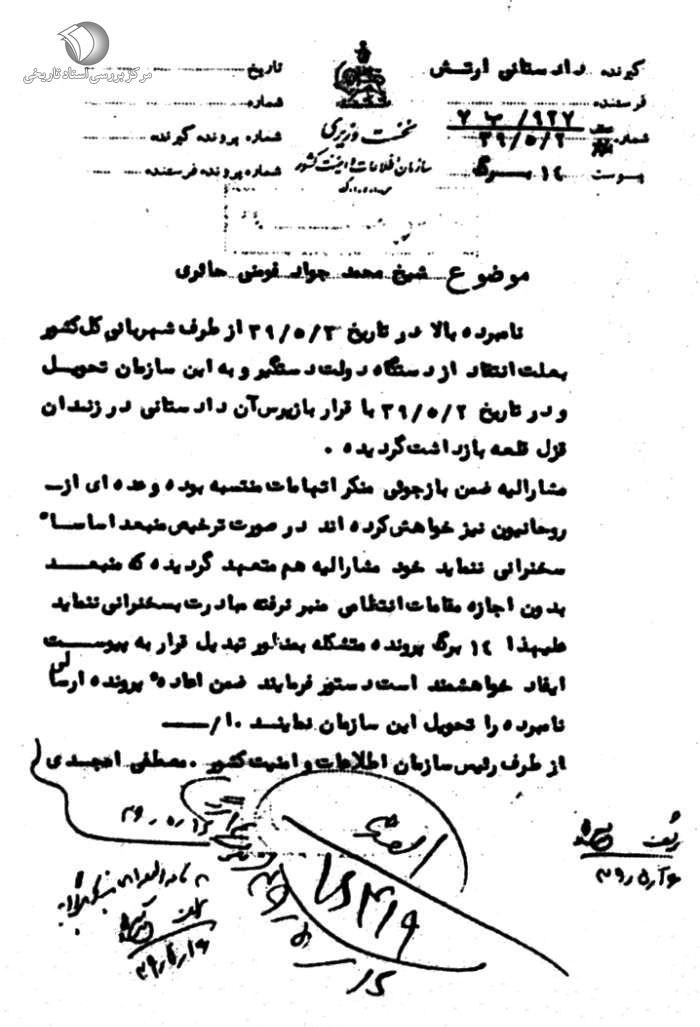 مرکز بررسی اسناد تاریخی
گیرنده دادستانی ارتش
فرستنده
شماره ۹۲۷/ ب ۷
۳۹/۵/۲
پیوست ۱۴ برگ
نخست وزیری
سازمان اطلاعات و امنیت کشور
س.ا.و.ا.ک
تاریخ
شماره
شماره پرونده گیرنده
شماره پرونده فرستنده
موضوع شیخ محمد جواد فومنی حائری
نامبرده بالا در تاریخ ۳۹/۵/۳ از طرف شهربانی کل کشور
بعلت انتقاد از دستگاه دولت دستگیر و به این سازمان تحویل
و در تاریخ ۳۹/۵/۲ با قرار بازپرس آن دادستانی در زندان
قزل قلعه بازداشت گردیده .
مشارالیه ضمن بازجوئی منکر اتهامات منتسبه بوده و عده ای از
روحانیون نیز خواهش کرده اند در صورت ترخیص منبعد اساسا"
سخنرانی ننماید خود مشارالیه هم متعهد گردیده که منبعد
بدون اجازه مقامات انتظامی منبر نرفته مبادرت بسخنرانی ننماید
علیهذا ۱۴ برگ پرونده متشکله بمنظور تبدیل قرار به پیوست
ایفاد خواهشمند است دستور فرمایند ضمن اعاده پرونده ارسالی
نامبرده را تحویل این سازمان نمایند ۱۰/
از طرف رئیس سازمان اطلاعات و امنیت کشور . مصطفی امجدی